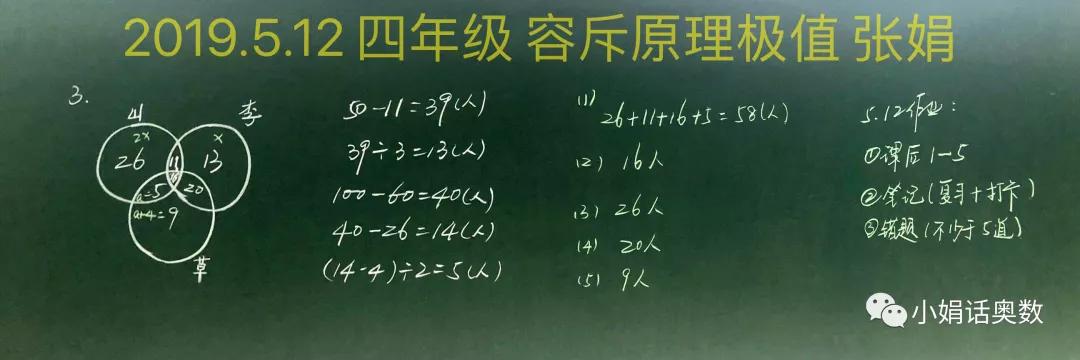 2019.5.12 四年级 容斥原理极值 张娟
3.
山
李
2x
x
26
11
13
16
a=5
20
a+4=9
草
50-11=39(人)
39÷3=13(人)
100-60=40(人)
40-26=14(人)
(14-4)÷2=5(人)
(1) 26+11+16+5=58(人)
(2) 16人
(3) 26人
(4) 20人
(5) 9人
5.12作业:
①课后1-5
②笔记(复习+打卡)
③错题(不少于5道)
小娟话奥数